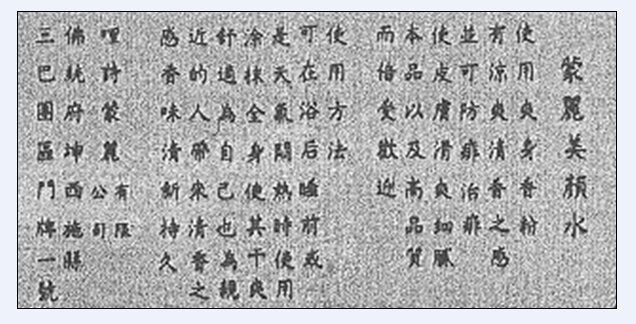 蒙麗美顏水
使用爽身香粉
有涼爽清香之感
並可防痱治痱
使皮膚滑爽細膩
本品以及高品質
而倍受歡迎
使用方法
可在浴后睡前或
是天氣悶熱時使用
涂抹全身使其干爽
舒適為自己也為親
近的人帶來清香之
感香味清新持久
哩詩蒙麗有限公司
佛統府坤西施縣
三巴團區門牌一號